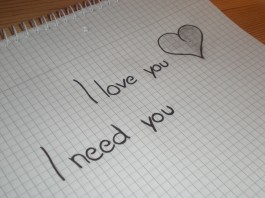 I love you
I need you